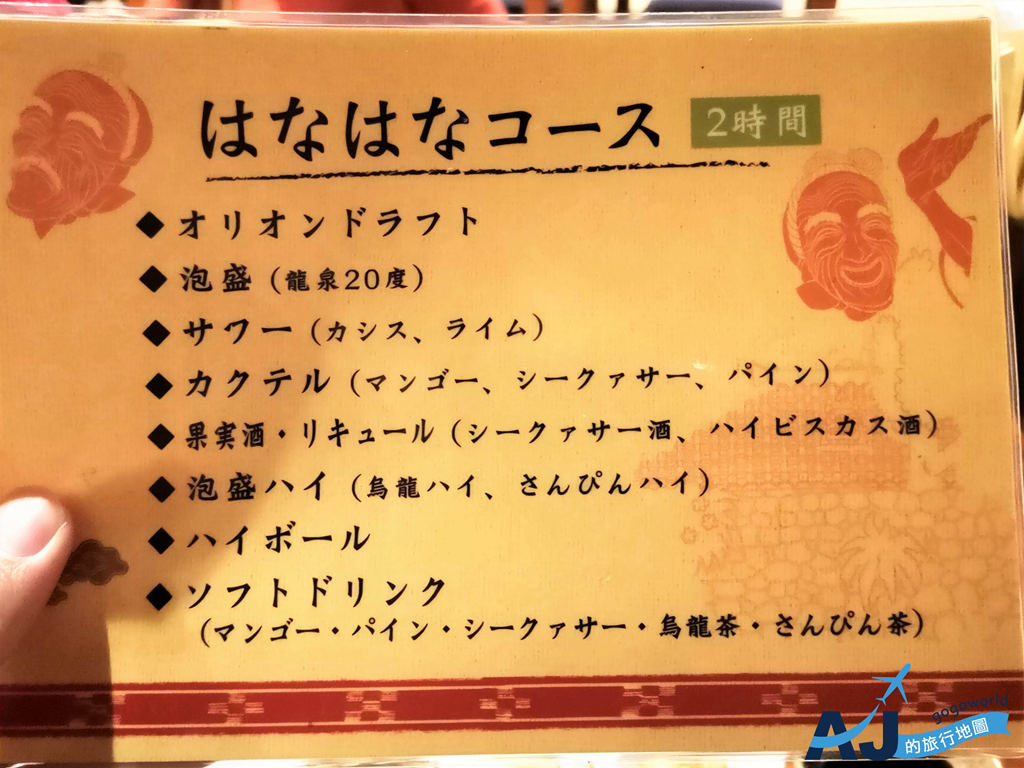 はなはなコース 2時間
◆オリオンドラフト
◆泡盛(龍泉20度)
◆サワー(カシス、ライム)
◆カクテル(マンゴー、シークァサー、パイン)
◆果実酒・リキュール(シークァサー酒、ハイビスカス酒)
◆泡盛ハイ(烏龍ハイ、さんぴんハイ)
◆ハイボール
◆ソフトドリンク
(マンゴー・パイン・シークァサー・烏龍茶・さんぴん茶)
gogoworld
AJ的旅行地圖